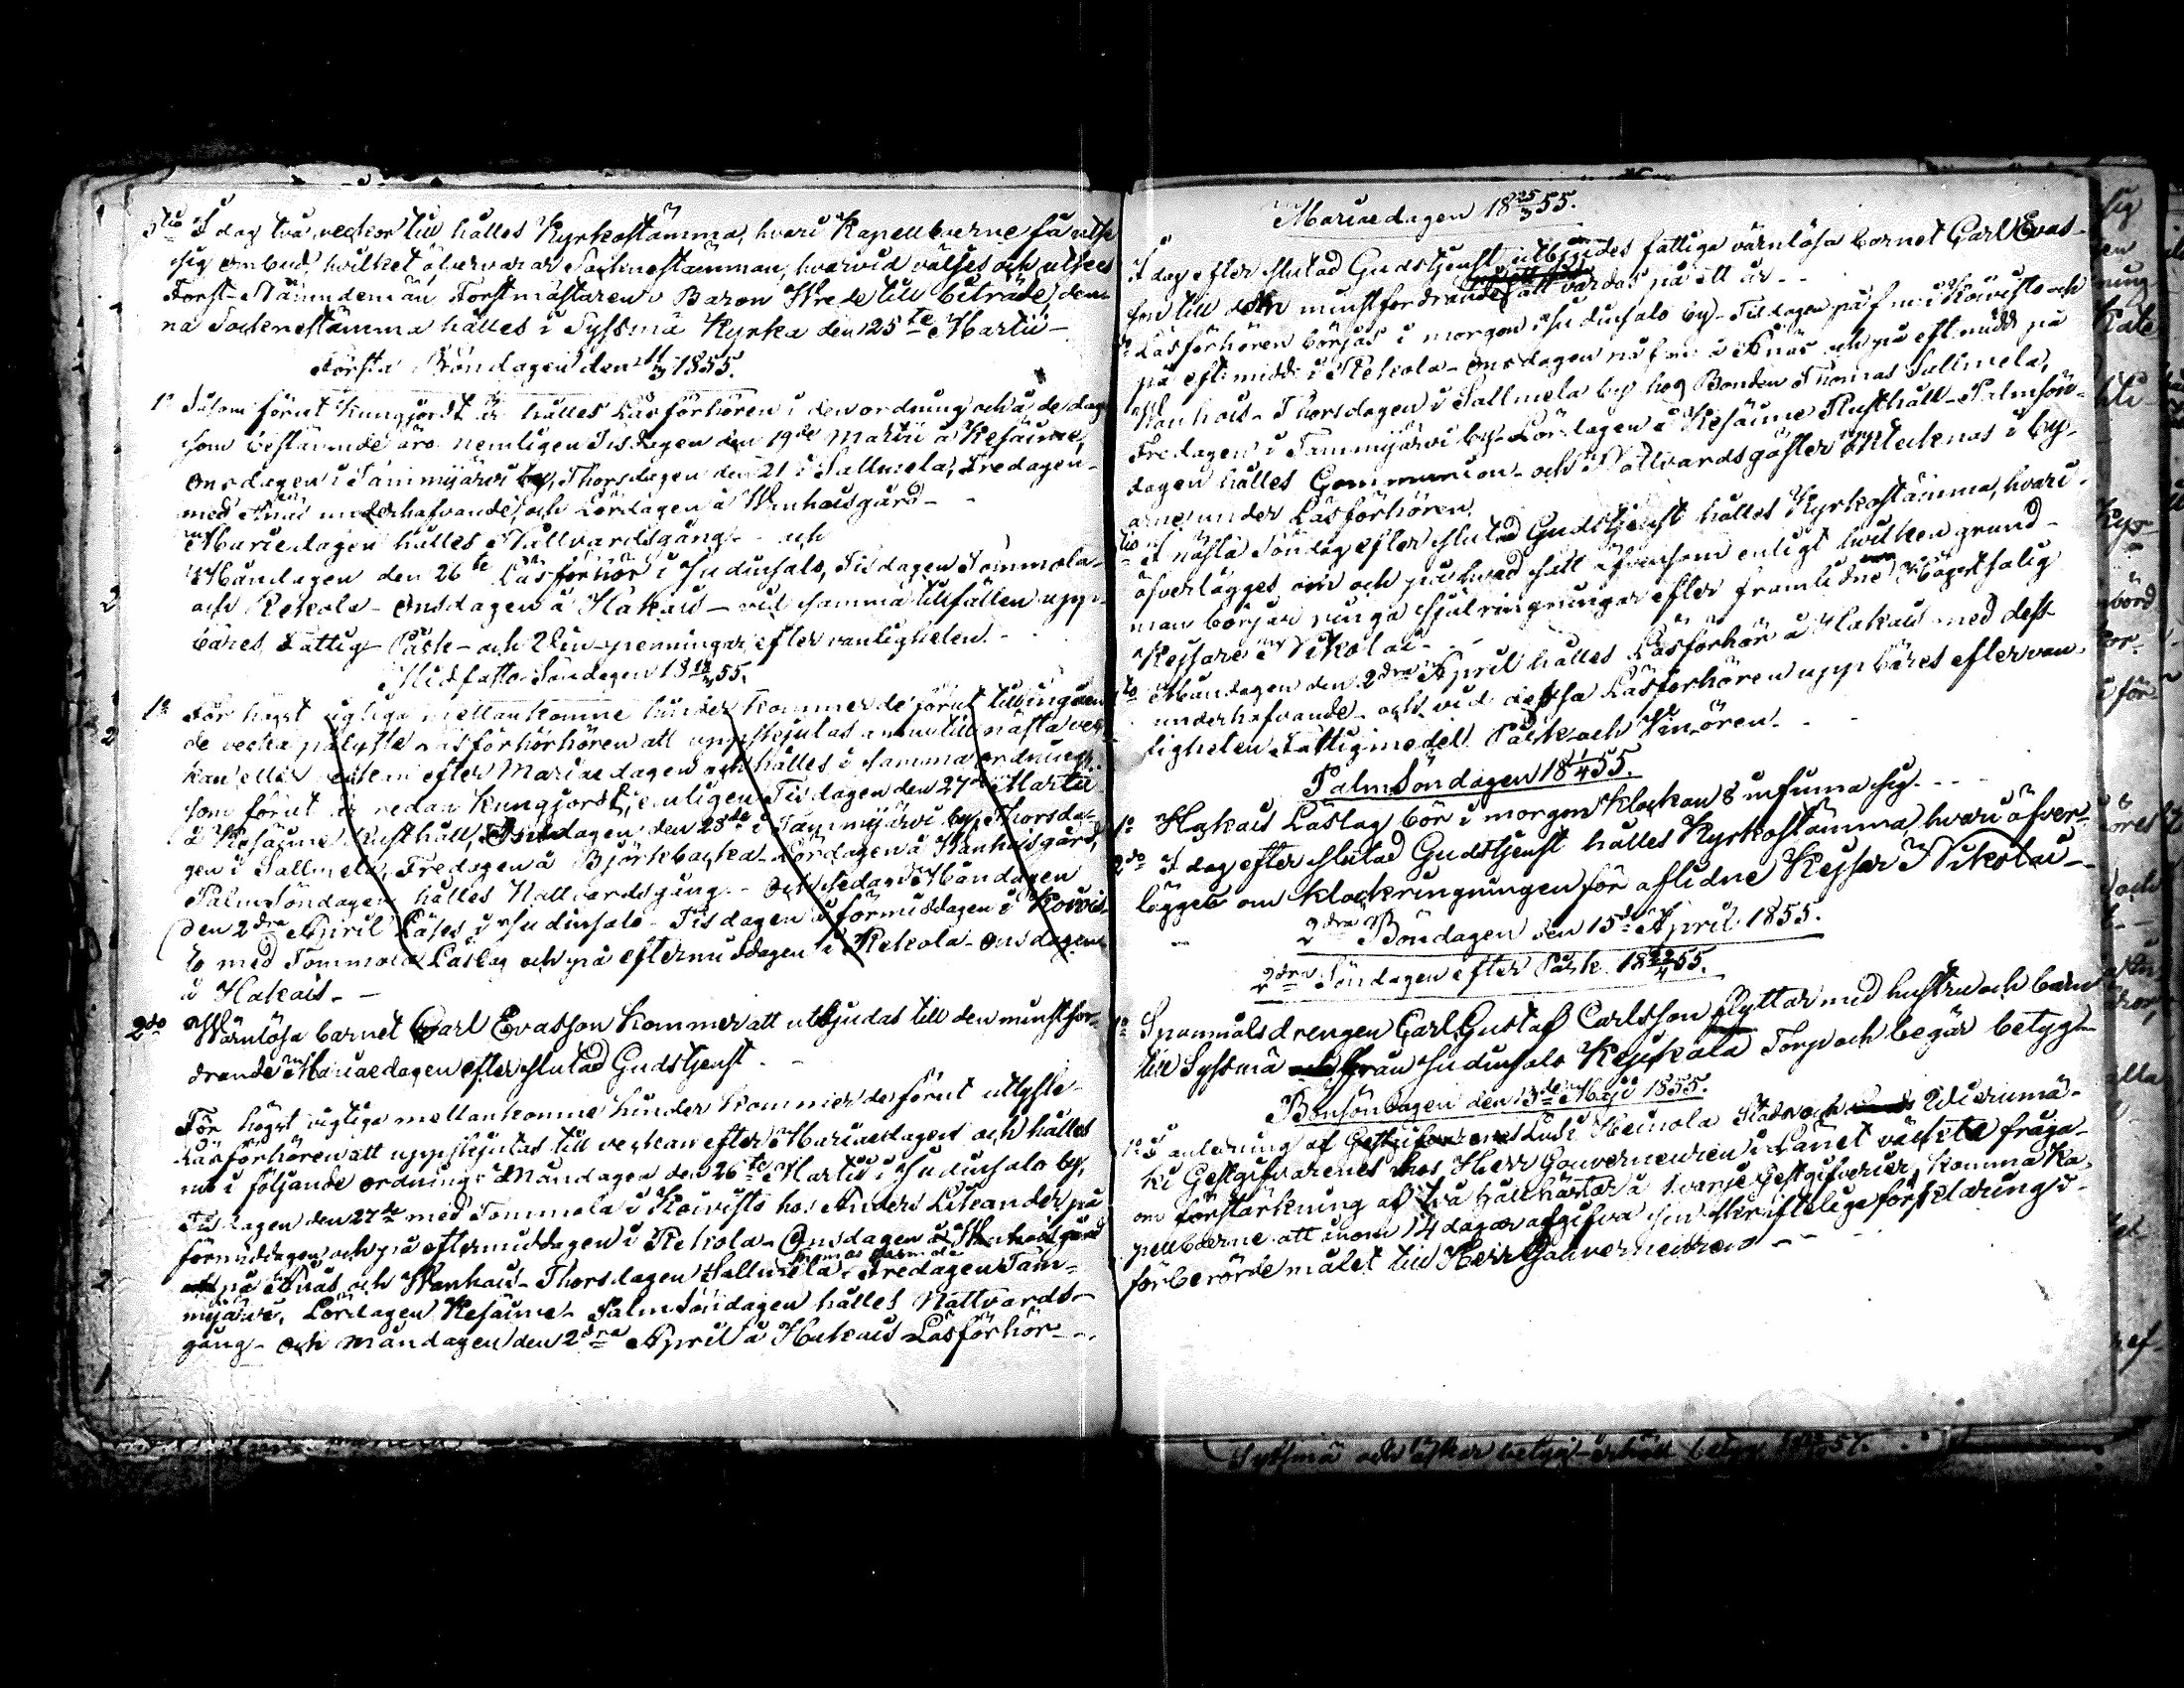 5to I dag två veckor till hålles Kyrkostämma, hvari Kapellboerne få utse
sig ombud, hvilket öfvervarar Socknestämman, hvarvid väljes och utsees
Forst-Nämndemän Forstmästaren Baron Wrede till biträde, den-
na Socknestämma hålles i Sysmä Kyrka den 25te Martii -
Första Böndagen den 11/3 1855.
1o Såsom förut kungjordt är hålles Läsförhören i den ordning och å de dagar
som bestämmde äro nemligen Tisdagen den 19de Martii å Kesäime,
Onsdagen i Tammijärvi by, Thorsdagen den 21 i Sallmela, Fredagen
med Änäs underhafvande, och Lördagen å Wanhaisgård -
Mariedagen hålles Nattvardsgång - och
Måndagen den 26te Läsförhör i Judinsalo, Tisdagen Tommola
och Rekola - Onsdagen å Hakais - vid samma tillfällen upp-
bäres Fattig- Påsk- och Vin-penningar efter vanligheten. -
Midfasto Söndagen 18 18/3 55.
1o För högst vigtiga mellankomne hinder kommer de förut tillingåen-
de vecka pålyste Läsförhörhören att uppskjutas ännu till nästa vec-
kan eller veckan efter Mariaedagen och hålles i samma ordning
som förut är redan kungjordt, nemligen Tisdagen den 27de Martii
å Kesäime Rusthåll, Onsdagen den 28de i Tammijärvi by, Thorsda-
gen i Sallmela, Fredagen å Björkbacka - Lördagen å Wanhaisgård,
Palmsöndagen hålles Nattvardsgång - Och sedan Måndagen
den 2dra April Läses i Judinsalo - Tisdagen å förmiddagen i Koivis-
to med Tommola Läslag och på eftermiddagen i Rekola - Onsdagen
å Hakais - -
2do Wärnlösa barnet Carl Evasson kommer att utbjudas till den minstfor-
drande Mariaedagen efter slutad Gudstjenst -
För högst vigtiga mellankomne hinder kommer de förut utlyste
Läsförhören att uppskjutas till veckan efter Mariaedagen och hålles
nu i följande ordning: Måndagen den 26te Martii i Judinsalo by,
Tisdagen den 27de med Tommola i Koivisto hos Anders Likander på
förmiddagen och på eftermiddagen i Rekola - Onsdagen å Wanhaisgård
på Änäs och Wanhais - Thorsdagen Sallmela - Fredagen Tam-
mijärvi, Lördagen Kesäime - Palmsöndagen hålles Nattvards-
gång - och Måndagen den 2dra April å Hakais Läsförhör - -
Mariaedagen 18 25/3 55.
I dag efter slutad Gudstjenst utbjudes fattiga värnlösa barnet Carl Evas-
son till den minstfordrande att vårdas på ett år - -
Läsförhören börjas i morgon i Judinsalo by - Tisdagen på f.m. i Koivisto och
på eft. midd. i Rekola - Onsdagen på f.m. i Änäs och på eft. midd. på
Wanhais - Thorsdagen i Sallmela by hos Bonden Thomas Sallmela,
Fredagen i Tammijärvi by - Lördagen å Kesäime Rusthåll - Palmsön-
dagen hålles Communion - och Nattvardsgäster antecknas i by-
arne under Läsförhören.
tio Nästa Söndag efter slutad Gudstjenst hålles Kyrkostämma, hvari
öfverlägges om och på hvad sätt äfvensom enligt hvilken grund
man börjar ringa själringningar efter framlidne Högstsalig
Kejsaren Nikolai - -
to Måndagen den 2dra April hålles Läsförhör å Hakais med dess
underhafvande - och vid dessa Läsförhören uppbäres efter van-
ligheten Fattigmedel Påsk och Vinören. - -
PalmSöndagen 18 1/4 55.
1o Hakais Läslag bör i morgon Klockan 8 infinna sig. - - -
2do I dag efter slutad Gudstjenst hålles Kyrkostämma, hvari öfver-
lägges om klockringningen för aflidne Kejsar Nikolai -
2dra Böndagen den 15de April 1855.
2dra Söndagen efter Påsk 18 22/4 55.
1o Spannmålsdrengen Carl Gustaf Carlsson flyttar med hustru och barn
till Sysmä från Judinsalo Torp och begär betyg -
Bönsöndagen den 13de Maji 1855.
1o I anledning af Lusi Heinola Stads och Wierumä-
ki Gestgifvarenes hos Herr Gouverneuren i Länet väckta fråga
om förstärkning af två hållhästar å hvarje Gestgifverier, komma Ka-
pellboerne att inom 14 dagar afgifva sin skriftelige förklaring i
förberörde målet till Herr Gouverneuren - - -